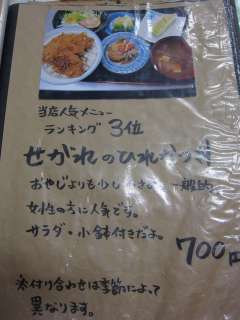 当店人気メニュー
ランキング 3位
せがれのひれかつ丼
おやじよりも少し
女性の方に人気です。
サラダ・小鉢付きだよ。
700円
添付り合わせは季節によって
異なります。